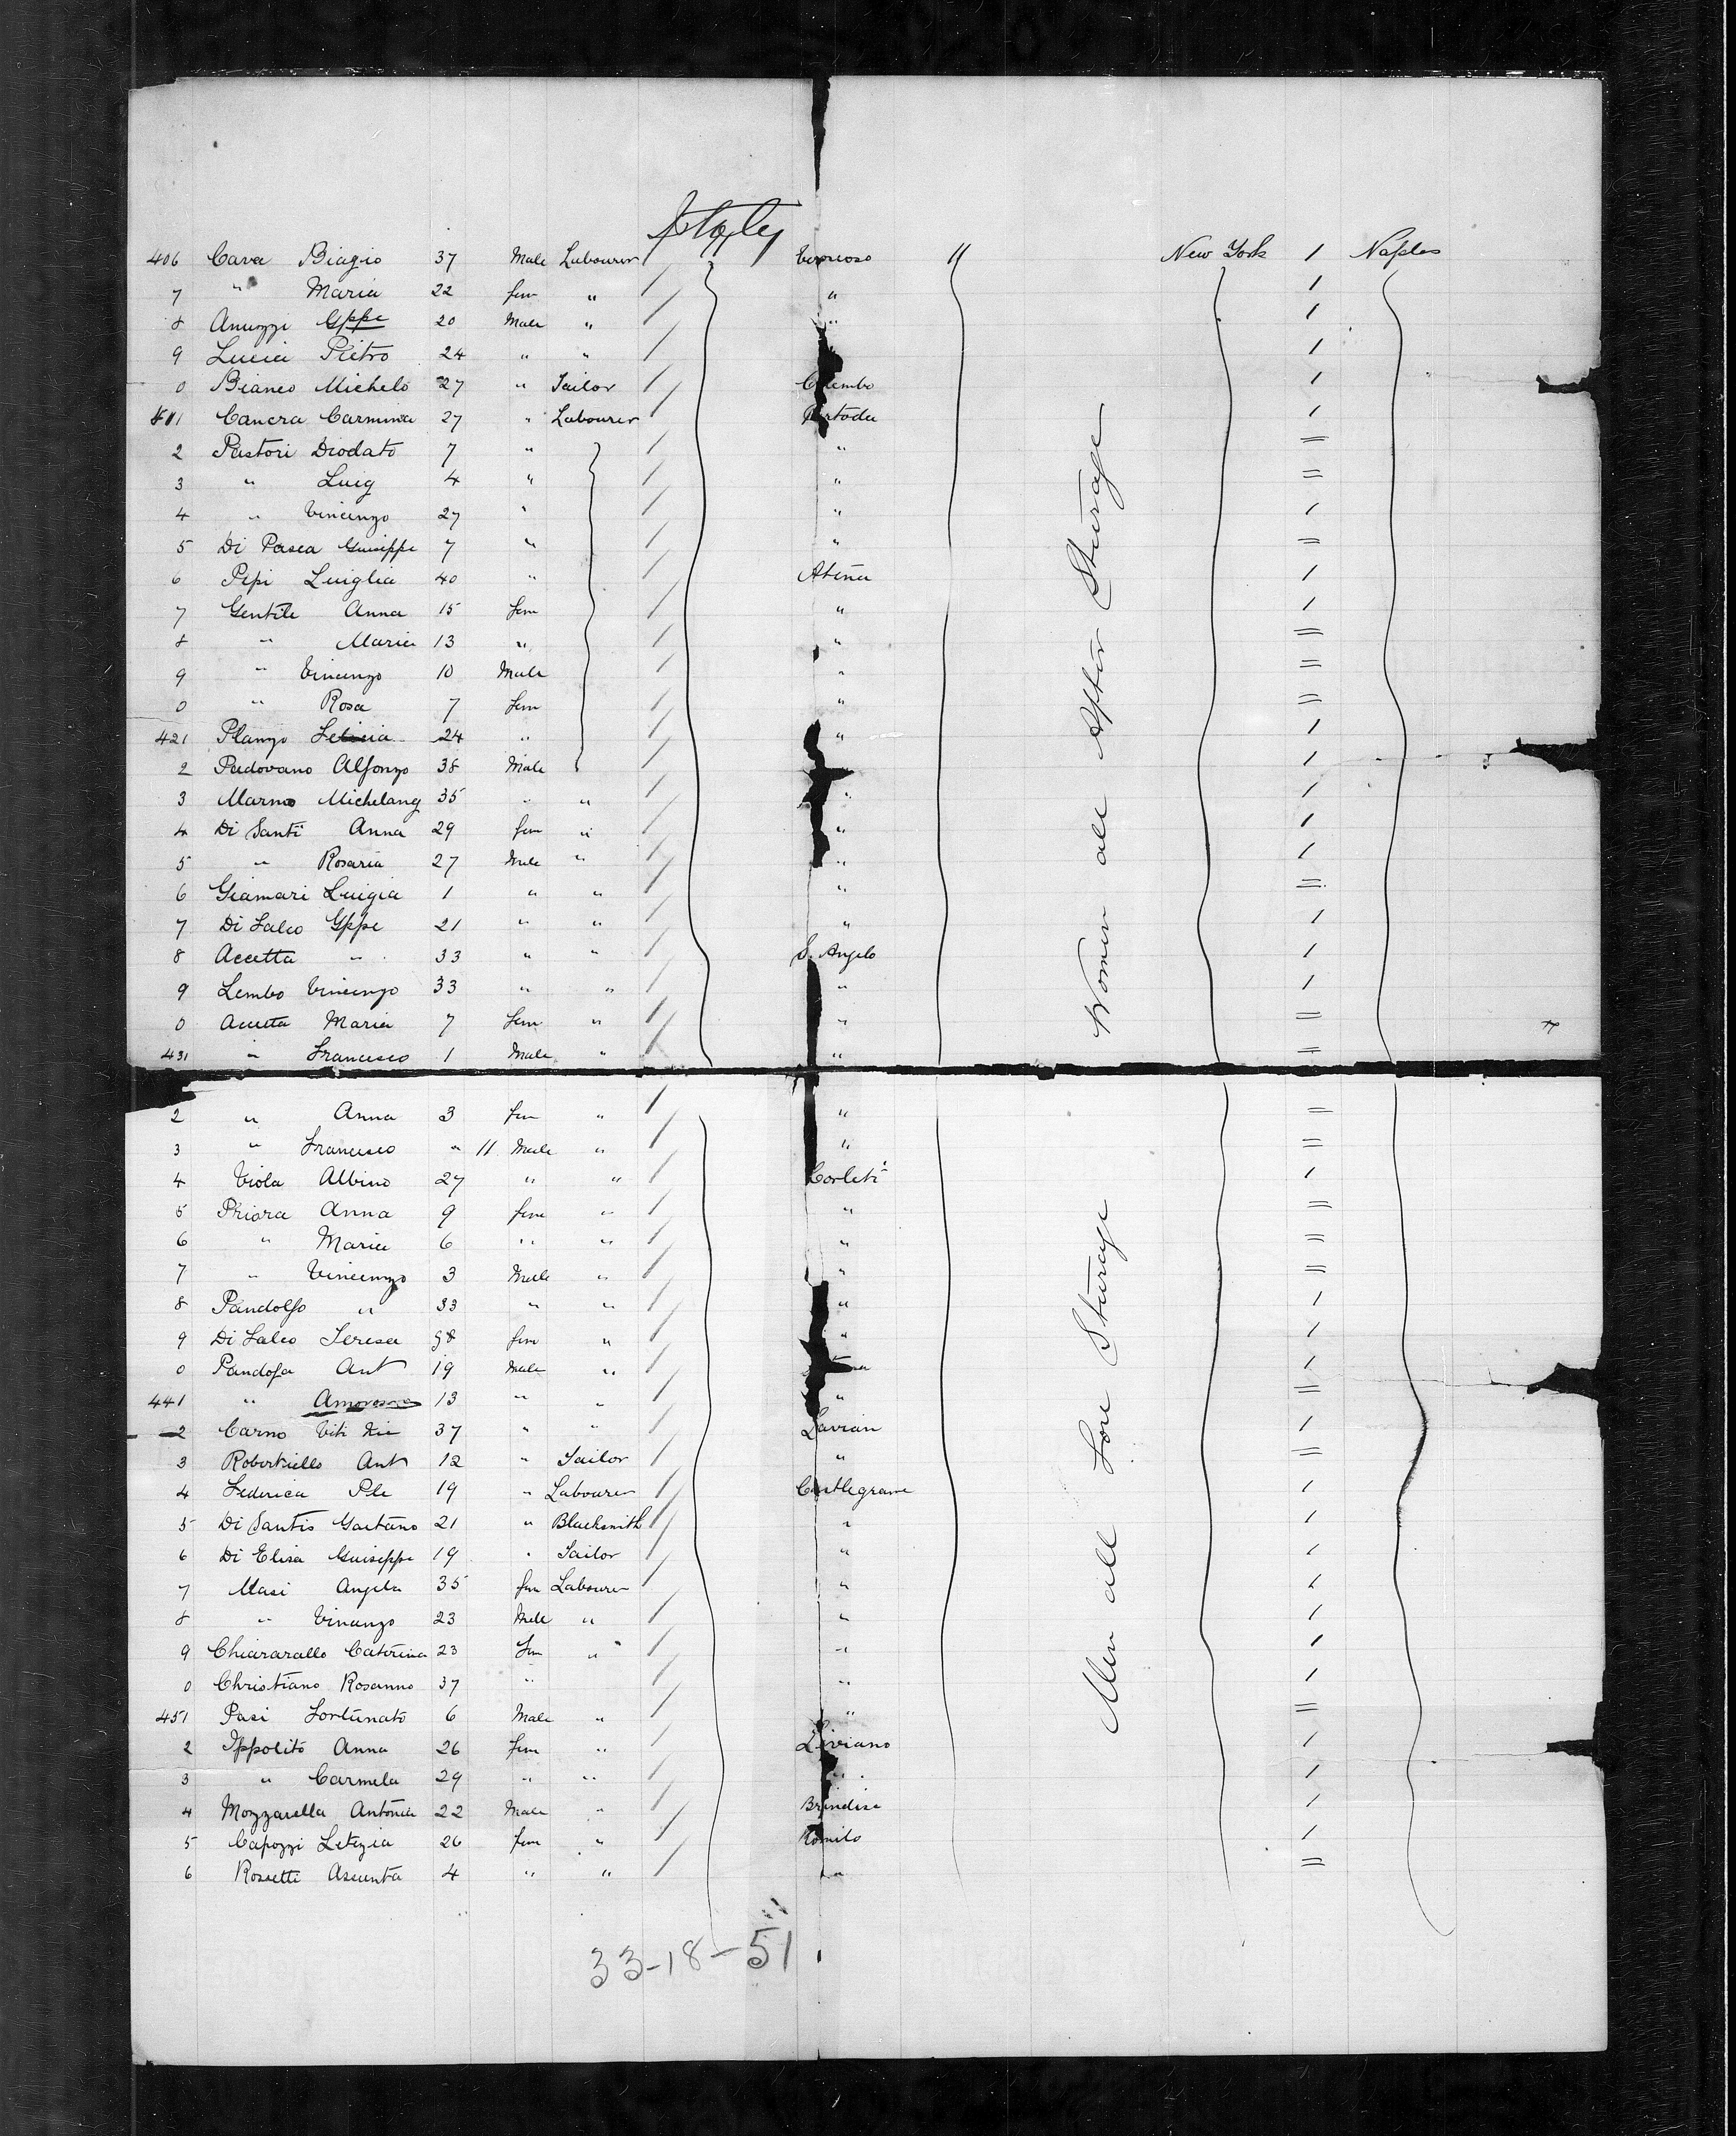 Italy
406 Cava Biagio 37 Male Labourer New York 1 Naples
7 " Maria 22 fem " " 1
8 Anuzzi Gppe 20 Male " " 1
9 Lucia Pietro 24 " " 1
0 Bianco Michele 27 " Tailor 1
411 Cancra Carmina 27 " Labourer 1
2 Pastori Diodato 7 " " =
3 " Luig 4 " " =
4 " Vincenzo 27 " " 1
5 Di Pasca Guiseppe 7 " " =
6 Pipi Luiglia 40 " Atena 1
7 Gentile Anna 15 fem " 1
8 " Maria 13 " " =
9 " Vincenzo 10 Male " =
0 " Rosa 7 fem " =
421 Planzo 24 " " 1
2 Padovano Alfonzo 38 Male 1
3 Marno Michelang 35 " " " 1
4 Di Santi Anna 29 fem " " 1
5 " Rosaria 27 Male " " 1
6 Giamari Luigia 1 " " " =
7 Di Salco Gppe 21 " " " 1
8 Accetta " 33 " " S. Angelo 1
9 Lembo Vincenzo 33 " " " 1
0 Accetta Maria 7 fem " " =
431 " Francesco 1 Male " " =
Women all After Sturage
2 " Anna 3 fem " " =
3 " Francesco " 11 Male " " =
4 Viola Albino 27 " " Corleti 1
5 Priora Anna 9 fem " " =
6 " Maria 6 " " " =
7 " Vincenzo 3 Male " " =
8 Pandolfo " 33 " " " 1
9 Di Salco Teresa fem " " 1
0 Pandofa Ant 19 Male " 1
441 " Amorosa 13 " " " =
2 Carno Viti Nic 37 " " Lavian 1
3 Robertiello Ant 12 " Tailor " =
4 Federica Ple 19 " Labourer Castlegrane 1
5 Di Santis Gaetano 21 " Blacksmith " 1
6 Di Elisa Guiseppe 19 " Tailor " 1
7 Masi Angela 35 fem Labourer " 1
8 " Vincenzo 23 Male " " 1
9 Chiararallo Caterina 23 fem " " 1
0 Christiano Rosanno 37 " " 1
451 Pasi Fortunato 6 Male " " =
2 Ippolito Anna 26 fem " Liviano 1
3 " Carmela 29 " " " 1
4 Mozzarella Antonia 22 Male " Brindisi 1
5 Capozzi Letizia 26 fem " Romito 1
6 Rossetti Assunta 4 " " " =
Men all Fore Sturage
33-18-51